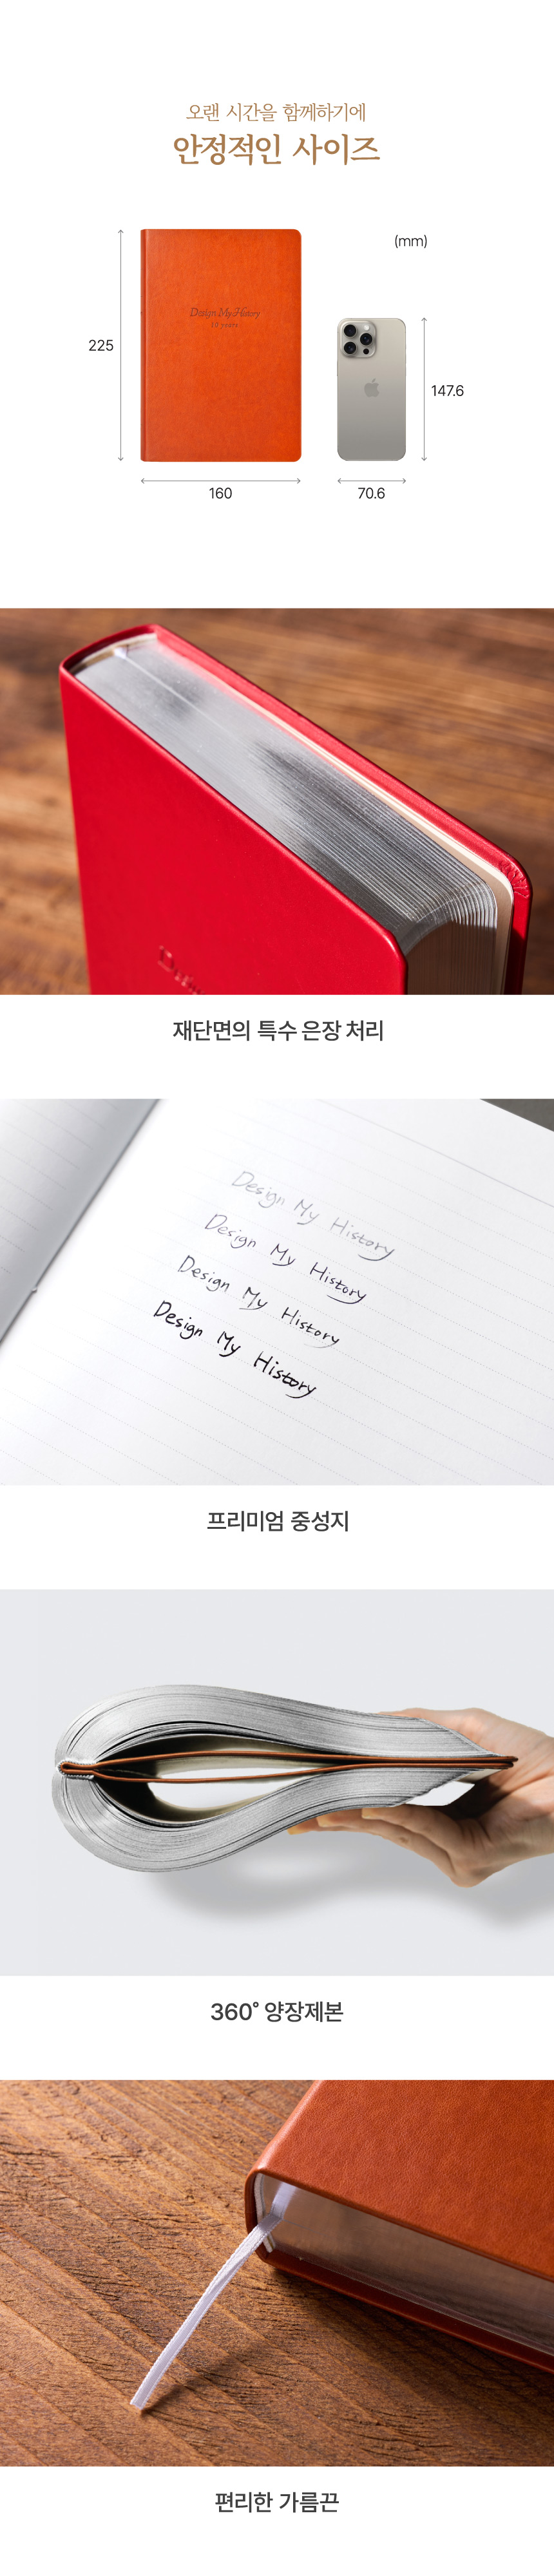 오랜 시간을 함께하기에
안정적인 사이즈
(mm)
Design My History
10 years
225
147.6
160
70.6
재단면의 특수 은장 처리
Design My History
Design My History
Design My History
Design My History
프리미엄 중성지
360° 양장제본
편리한 가름끈